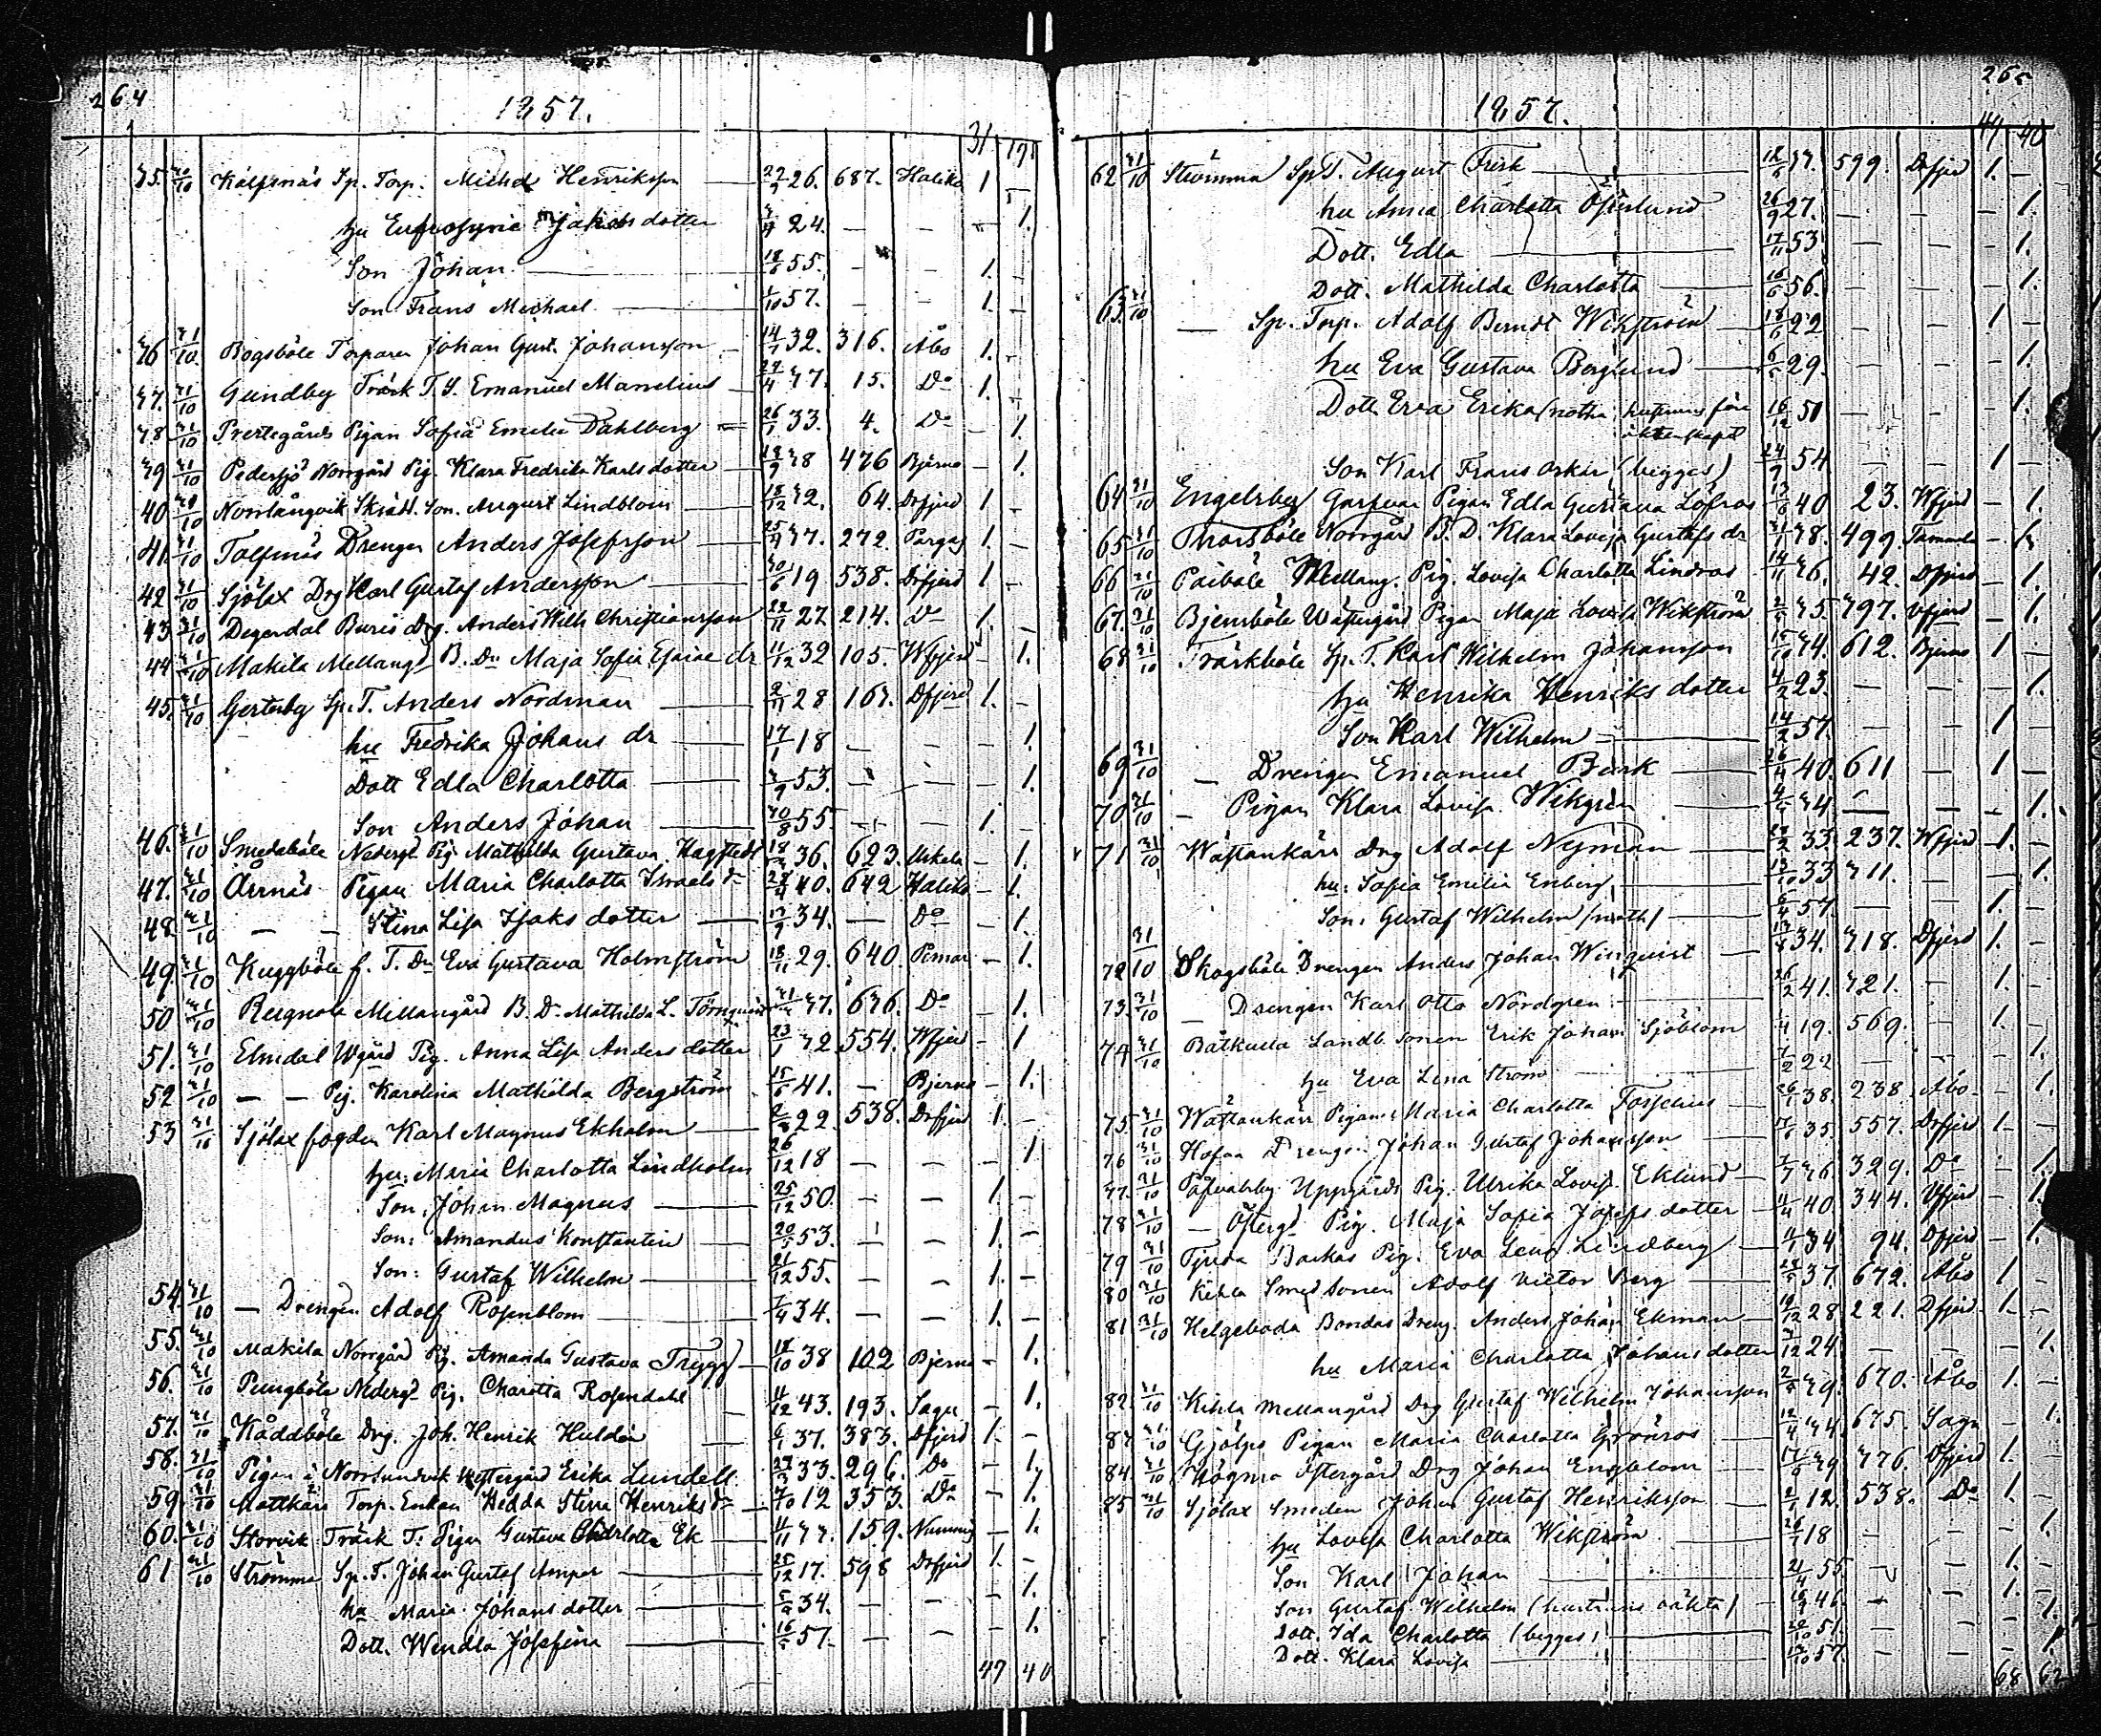 264
1857.
31 19
35. 31/10 Kälpsnäs Sp. Torp. Michel Henriksson 26. 687. Haliko 1 –
hu Eufrosyne Jakobsdotter 24. – – – 1.
Son Johan 18/6 55. – – 1. –
Son Frans Michael 1/10 57. – – 1. –
36 31/10 Bogsböle Torparen Johan Gust. Johansson 14/1 32. 316. Åbo 1. –
37. 31/10 Gundby Träsk T. S. Emanuel Manelius 37. 15. Do 1. –
38 31/10 Prestegårds Pigan Sofia Emelie Dahlberg 26/1 33. 4. Do – 1.
39 31/10 Pedersjö Norrgård Pig. Klara Fredrika Karlsdotter 38 476 Bjerno – 1.
40 31/10 Norrlångvik Skrädd. Son. August Lindblom 32. 64. Drfjerd 1 –
41. 31/10 Tolfsnäs Drengen Anders Josefsson 37. 272. Pargas 1. –
42 31/10 Sjölax Drg Karl Gustaf Andersson 30/6 19 538. Drfjerd 1 –
43 31/10 Degerdal Buris Drg. Anders Wilh Christiansson 22/11 27 214. Do 1. –
44 31/10 Makila Mellangd B. Dr Maja Sofia Esaiae dr 11/12 32 105. Wfjerd – 1.
45. 31/10 Gertsby Sp. T. Anders Nordman 28 167. Dfjerd 1. –
hu Fredrika Johans dr 17/1 18 – – – 1.
Dott Edla Charlotta 53. – – – 1.
Son Anders Johan 30/8 55. – – 1. –
46. 31/10 Smedsböle Nedergd Pig. Mathilda Gustava Hagstedt 36. 623. Uskela – 1.
47. 31/10 Årrnäs Pigan Maria Charlotta Israels dr 40. 642 Haliko – 1.
48. 31/10 – – Stina Lisa Isaks dotter 34. – Do – 1.
49. 31/10 Kuggböle f. T. Dr Eva Gustava Holmström 18/11 29. 640. Pemar – 1.
50 31/10 Reugnola Mellangård B. Dr Mathilda L. Törnqvist 37. 636. Do – 1.
51. 31/10 Elmdal Wgård Pig. Anna Lisa Andersdotter 23/1 32 554. Wfjerd – 1
52 31/10 – – Pig. Karolina Mathilda Bergström 15/6 41. – Bjerno – 1.
53 31/10 Sjölax fogden Karl Magnus Ekholm 22. 538. Drfjerd 1. –
hu: Maria Charlotta Lindholm 26/12 18 – – – 1.
Son: Johan Magnus 25/12 50. – – 1. –
Son: Amandus Konstantin 53. – – 1. –
Son: Gustaf Wilhelm 21/12 55. – – 1. –
54. 31/10 – Drengen Adolf Rosenblom 34. – – 1. –
55. 31/10 Makila Norrgård Pig. Amanda Gustava Trygg 38 102 Bjerno – 1.
56. 31/10 Pungböle Nedergd Pig. Charlotta Rosendahl 11/12 43. 193. Sagu – 1.
57. 31/10 Kåddböle Drg. Joh. Henrik Huldén 37. 383. Dfjerd 1. –
58. 31/10 Pigan i Norrsundvik Westergård Erika Lundell 33. 296. Do – 1.
59. 31/10 Mattkärr Torp. Enkan Hedda Stina Henriks dr 12 353. Do – 1.
60. 31/10 Storvik Träsk T: Pigan Gustava Charlotta Ek 11/11 37. 159. – 1.
61 31/10 Strömma Sp. T. Johan Gustaf Amper 25/12 17. 598 Drfjerd 1. –
hu Maria Johans dotter 34. – – – 1.
Dott. Wendla Josefina 57. – – – 1.
47 40
265
1857.
47 40
62 31/10 Strömma Sp. T. August Frisk 37. 599. Drfjer 1. –
hu Anna Charlotta Österlund 26/9 27. – – – 1.
Dott. Edla 17/11 53 – – – 1.
Dott. Mathilda Charlotta 16/6 56. – – – 1.
63. 31/10 – Sp. Torp. Adolf Berndt Wikström 22 – – 1 –
hu Eva Gustava Berglund 29. – – – 1.
Dott Erva Erika (notha hustruns före äktenskapet 16/12 50 – – – 1.
Son Karl Frans Oskar (begges) 24/9 54 – – 1 –
64 31/10 Engelsby Garfvar Pigan Edla Gustava Löfros 40 23. Wfjerd – 1.
65 31/10 Thorsböle Norrgård B. D. Klara Lovisa Gustafs dr 38. 499. – 1.
66 31/10 Paiböle Mellang. Pig. Lovisa Charlotta Lindros 14/11 36. 42. Dfjerd – 1.
67. 31/10 Bjensböle Wästergård Pigan Maja Lovisa Wikström 35. 397. Vfjerd – 1.
68 31/10 Träskböle Sp. T. Karl Wilhelm Johansson 34. 612. Bjerno 1 –
hu Henrika Henriks dotter 4/2 23. – – – 1.
Son Karl Wilhelm 14/2 57. – – 1 –
69 31/10 – Drengen Emanuel Bark 26/4 40. 611 – 1 –
70 31/10 – Pigan Klara Lovisa Wikgren 34 – – – 1.
71 31/10 Wästankärr Drg Adolf Nyman 33. 237. Wfjerd 1. –
hu: Sofia Emilia Enberg 33 311. – – 1.
Son: Gustaf Wilhelm (noth) 6/4 57. – – 1. –
72 31/10 Skogsböle Drengen Anders Johan Winqvist 34. 318. Dfjerd 1. –
73. 31/10 – Drengen Karl Otto Nordgren 26/2 41. 321. – 1. –
74 31/10 Båtkulla Landb. Sonen Erik Johan Sjöblom 19. 569. – 1. –
hu Eva Lena Ström 22 – – – 1.
75. 31/10 Wästankärr Pigan Maria Charlotta Forselius 26/1 38. 238. Åbo – 1.
76 31/10 Hofna Drengen Johan Gustaf Johansson 35. 557. Drfjerd 1. –
77. 31/10 Påfvalsby Uppgårds Pig. Ulrika Lovisa Eklund 36. 329. Do – 1.
78 31/10 – Östergd Pig. Maja Sofia Josefs dotter 40. 344. Vfjerd – 1.
79 31/10 Tjuda Backas Pig. Eva Lena Lindberg 34 94. Dfjerd – 1.
80 31/10 Kihla Smed Sonen Adolf Victor Berg 37. 672. Åbo 1 –
81 31/10 Helgeboda Bondas Dreng. Anders Johan Ekman 28 221. Dfjerd 1. –
hu Maria Charlotta Johansdotter 24. – – – 1.
82. 31/10 Kihla Mellangård Drg Gustaf Wilhelm Johansson 39. 670. Åbo 1. –
83 31/10 Gjölpo Pigan Maria Charlotta Grönros 12/4 34. 675. Sagu – 1.
84. 31/10 Högmo Östergård Drg Johan Engblom 17/6 39 376. Dfjerd 1. –
85 31/10 Sjölax Smeden Johan Gustaf Henriksson 12. 538. Do 1. –
hu Lovisa Charlotta Wikström 18 – – – 1.
Son Karl Johan 21/4 55 – – 1. –
Son Gustaf Wilhelm (hustruns oäkta) 46. – – 1. –
Dott. Ida Charlotta (begges) 51. – – – 1.
Dott. Klara Lovisa 57. – – – 1.
68 62